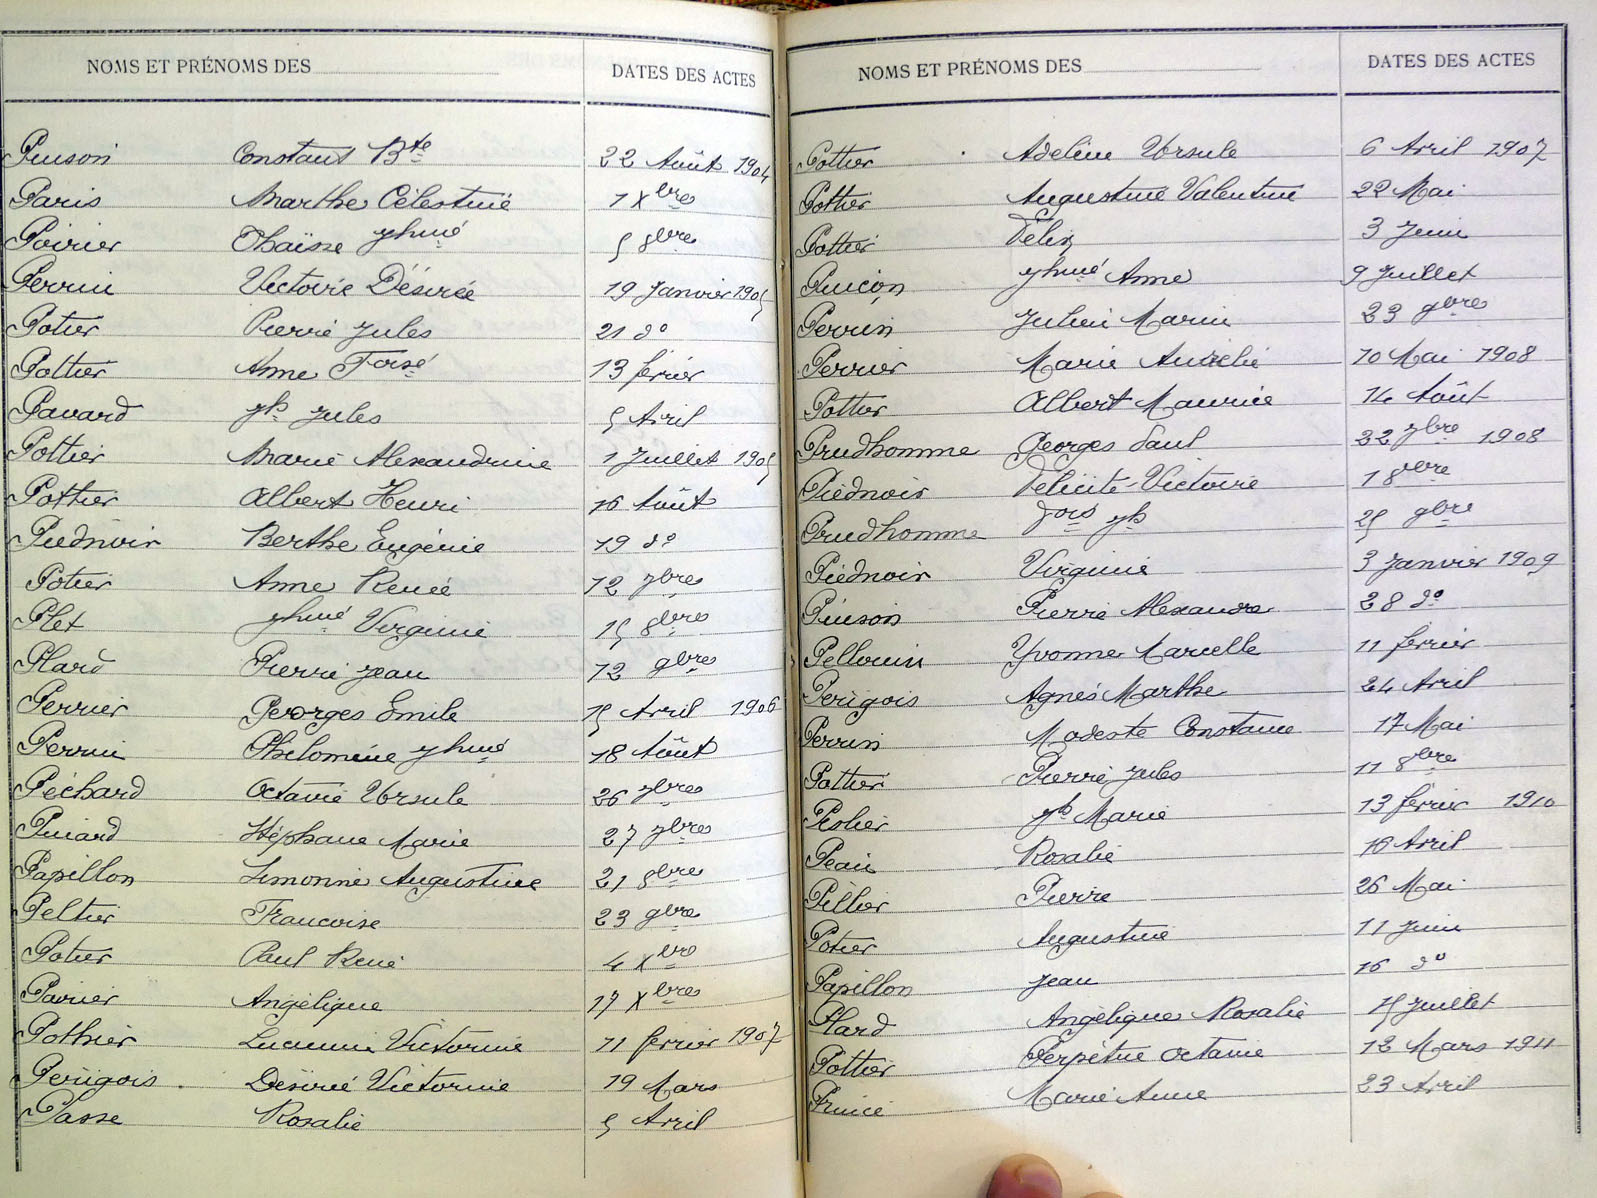 NOMS ET PRÉNOMS DES DATES DES ACTES
Pinson Constant Bte 22 Août 1904
Paris Marthe Célestine 1 Xbres
Poirier Thaïsse jhiné 5 8bres
Perrin Victoire Désirée 19 Janvier 1905
Potier Pierre Jules 21 do
Pottier Anne Forsé 13 férier
Pavard jh Jules 5 Avril
Pottier Marie Alexandrine 1 Juillet 1905
Pottier Albert Henri 16 Août
Piednoir Berthe Eugénie 19 do
Potier Anne Renée 12 7bres
Plet jhiné Virginie 15 8bres
Plard Pierre Jean 12 9bres
Perrier Georges Emile 15 Avril 1906
Perrin Philomène jhiné 18 Août
Péchard Octavie Ursule 26 7bres
Piniard Stéphane Marie 27 7bres
Papillon Simonne Augustine 21 8bres
Peltier Francoise 23 9bre
Potier Paul René 4 Xbre
Angélique 17 Xbres
Pothier Lucienne Victorine 11 férier 1907
Périgois Désiré Victorine 19 Mars
Passe Rosalie 5 Avril
NOMS ET PRÉNOMS DES DATES DES ACTES
Pottier Adeline Ursule 6 Avril 1907
Pottier Augustine Valentine 22 Mai
Pottier Félix 3 Juin
Pinçon jhiné Anne 9 Juillet
Perrin Julien Marin 23 9bres
Perrier Marie Aurélie 10 Mai 1908
Pottier Albert Maurice 14 Août
Prudhomme Georges Paul 22 7bre 1908
Piednoir Félicité-Victoire 1 8bre
Prudhomme fois jh 25 9bre
Piednoir Virginie 3 Janvier 1909
Pinson Pierre Alexandre 28 do
Pellouin Yvonne Marcelle 11 férier
Périgois Agnès Marthe 24 Avril
Perrin Modeste Constance 17 Mai
Pottier Pierre Jules 11 8bre
jh Marie 13 férier 1910
Peau Rosalie 18 Avril
Pillier Pierre 26 Mai
Potier Augustine 11 Juin
Papillon Jean 16 do
Plard Angélique Rosalie 15 Juillet
Pottier Perpétue Octavie 12 Mars 1911
Prince Marie Anne 23 Avril